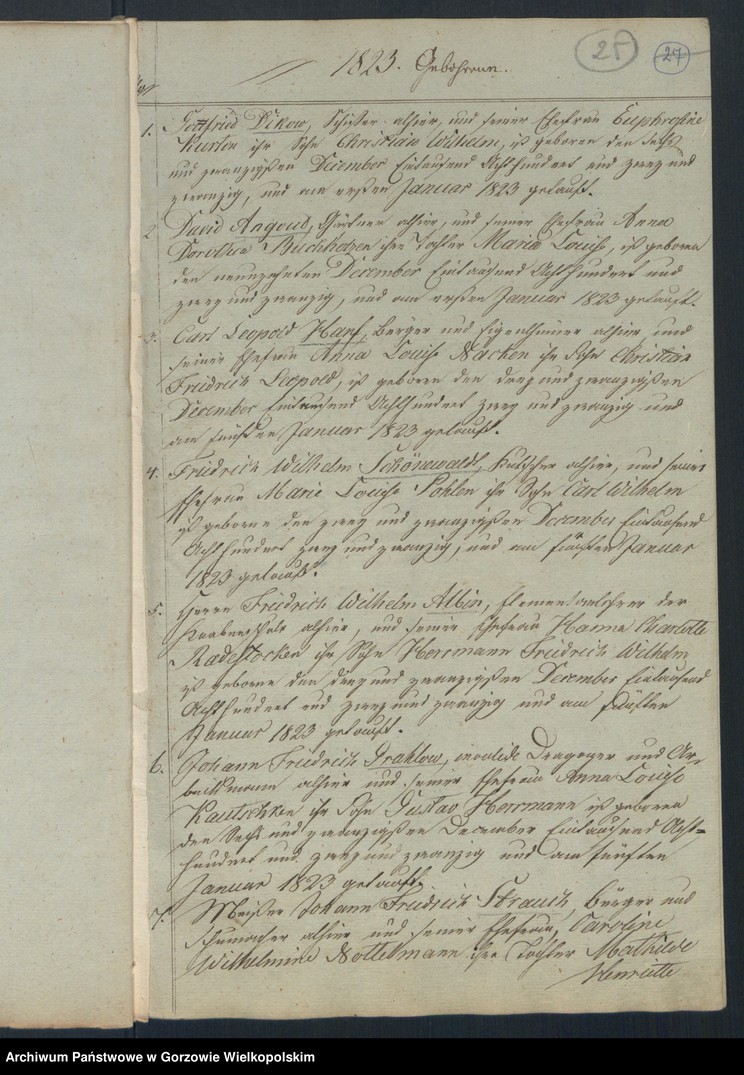 25 27
1823. Gebohrene.
No
1. Gottfried Dikow, Schister alhier, und seiner Ehefrau Euphrosine
Kursten ihr Sohn Christian Wilhelm, ist geboren den sechs
und zwanzigsten December Eintausend Achthundert und zwey und
zwanzig, und am ersten Januar 1823 getauft.
2 David Angoud, Gärtner alhier, und seiner Ehefrau Anna
Dorothea Buchholzen ihre Tochter Maria Louise, ist geboren
den neunzehnten December Eintausend Achthundert und
zwey und zwanzig, und am ersten Januar 1823 getauft.
3. Carl Leopold Hanf, Bürger und Eigenthümer alhier und
seiner Ehefrau Anna Louise Nacken ihr Sohn Christian
Friedrich Leopold, ist geboren den drey und zwanzigsten
December Eintausend Achthundert zwey und zwanzig und
am fünften Januar 1823 getauft.
4. Friedrich Wilhelm Schönwald, Kutscher alhier, und seiner
Ehefrau Marie Louise Pohlen ihr Sohn Carl Wilhelm
ist geboren den zwey und zwanzigsten December Eintausend
Achthundert zwey und zwanzig, und am fünften Januar
1823 getauft.
5. Herrn Friedrich Wilhelm Albin, Elementarlehrer der
Knabenschule alhier, und seiner Ehefrau Hanna Charlotte
Radestocken ihr Sohn Herrmann Friedrich Wilhelm
ist geboren den drey und zwanzigsten December Eintausend
Achthundert und zwey und zwanzig und am fünften
Januar 1823 getauft.
6. Johann Friedrich Grahlow, invalide Dragoner und Ar-
beitsmann alhier und seiner Ehefrau Anna Louise
Kautschken ihr Sohn Gustav Herrmann ist geboren
den Sechs und zwanzigsten December Eintausend Acht=
hundert und zwey und zwanzig und am fünften
Januar 1823 getauft.
7. Meister Johann Friedrich Strauch, Bürger und
Schumacher alhier und seiner Ehefrau, Caroline
Wilhelmine Nottelmann ihre Tochter Mathilde
Henriette
Archiwum Państwowe w Gorzowie Wielkopolskim